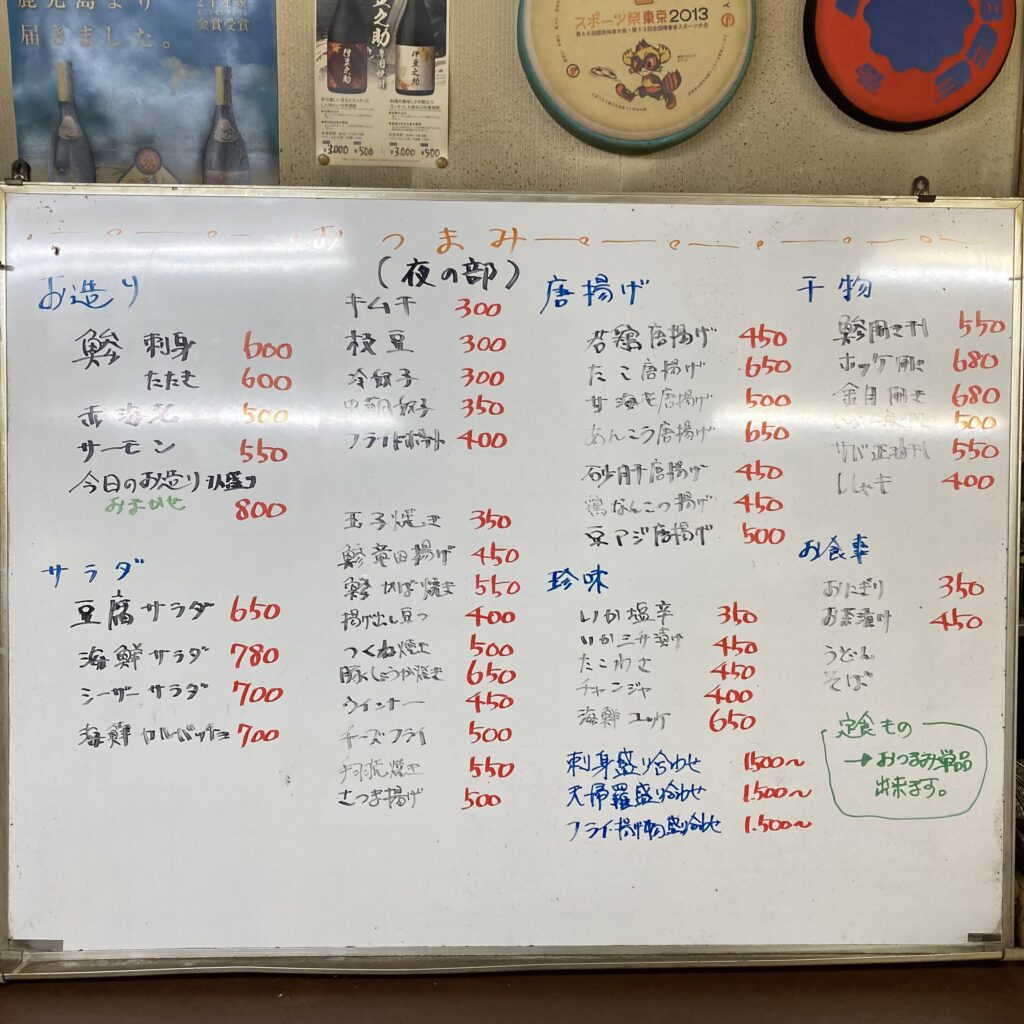 鹿児島より
届きました。
金賞受賞
伊豆之助
伊豆之助
¥3,000 ¥500
¥3,000 ¥500
スポーツ祭東京2013
第68回国民体育大会・第13回全国障害者スポーツ大会
おつまみ
(夜の部)
お造り
鯵 刺身 600
たたき 600
赤海老 500
サーモン 550
今日のお造り
おまかせ 800
サラダ
豆腐サラダ 650
海鮮サラダ 780
シーザーサラダ 700
海鮮カルパッチョ 700
キムチ 300
枝豆 300
冷奴 300
350
フライドポテト 400
玉子焼き 350
鯵竜田揚げ 450
鯵かば焼き 550
揚げ出し豆フ 400
つくね焼き 500
豚しょうが焼き 650
ウインナー 450
チーズフライ 500
550
さつま揚げ 500
唐揚げ
若鶏唐揚げ 450
たこ唐揚げ 650
甘海老唐揚げ 500
あんこう唐揚げ 650
砂肝唐揚げ 450
鶏なんこつ揚げ 450
豆アジ唐揚げ 500
珍味
いか塩辛 350
いか三升漬け 450
たこわさ 450
チャンジャ 400
海鮮ユッケ 650
刺身盛り合わせ 1500〜
天婦羅盛り合わせ 1.500〜
フライ・揚げ物盛り合わせ 1.500〜
干物
鯵開き 550
ホッケ開き 680
金目開き 680
500
サバ 550
ししゃも 400
お食事
おにぎり 350
お茶漬け 450
うどん
そば
定食もの
→おつまみ単品
出来ます。